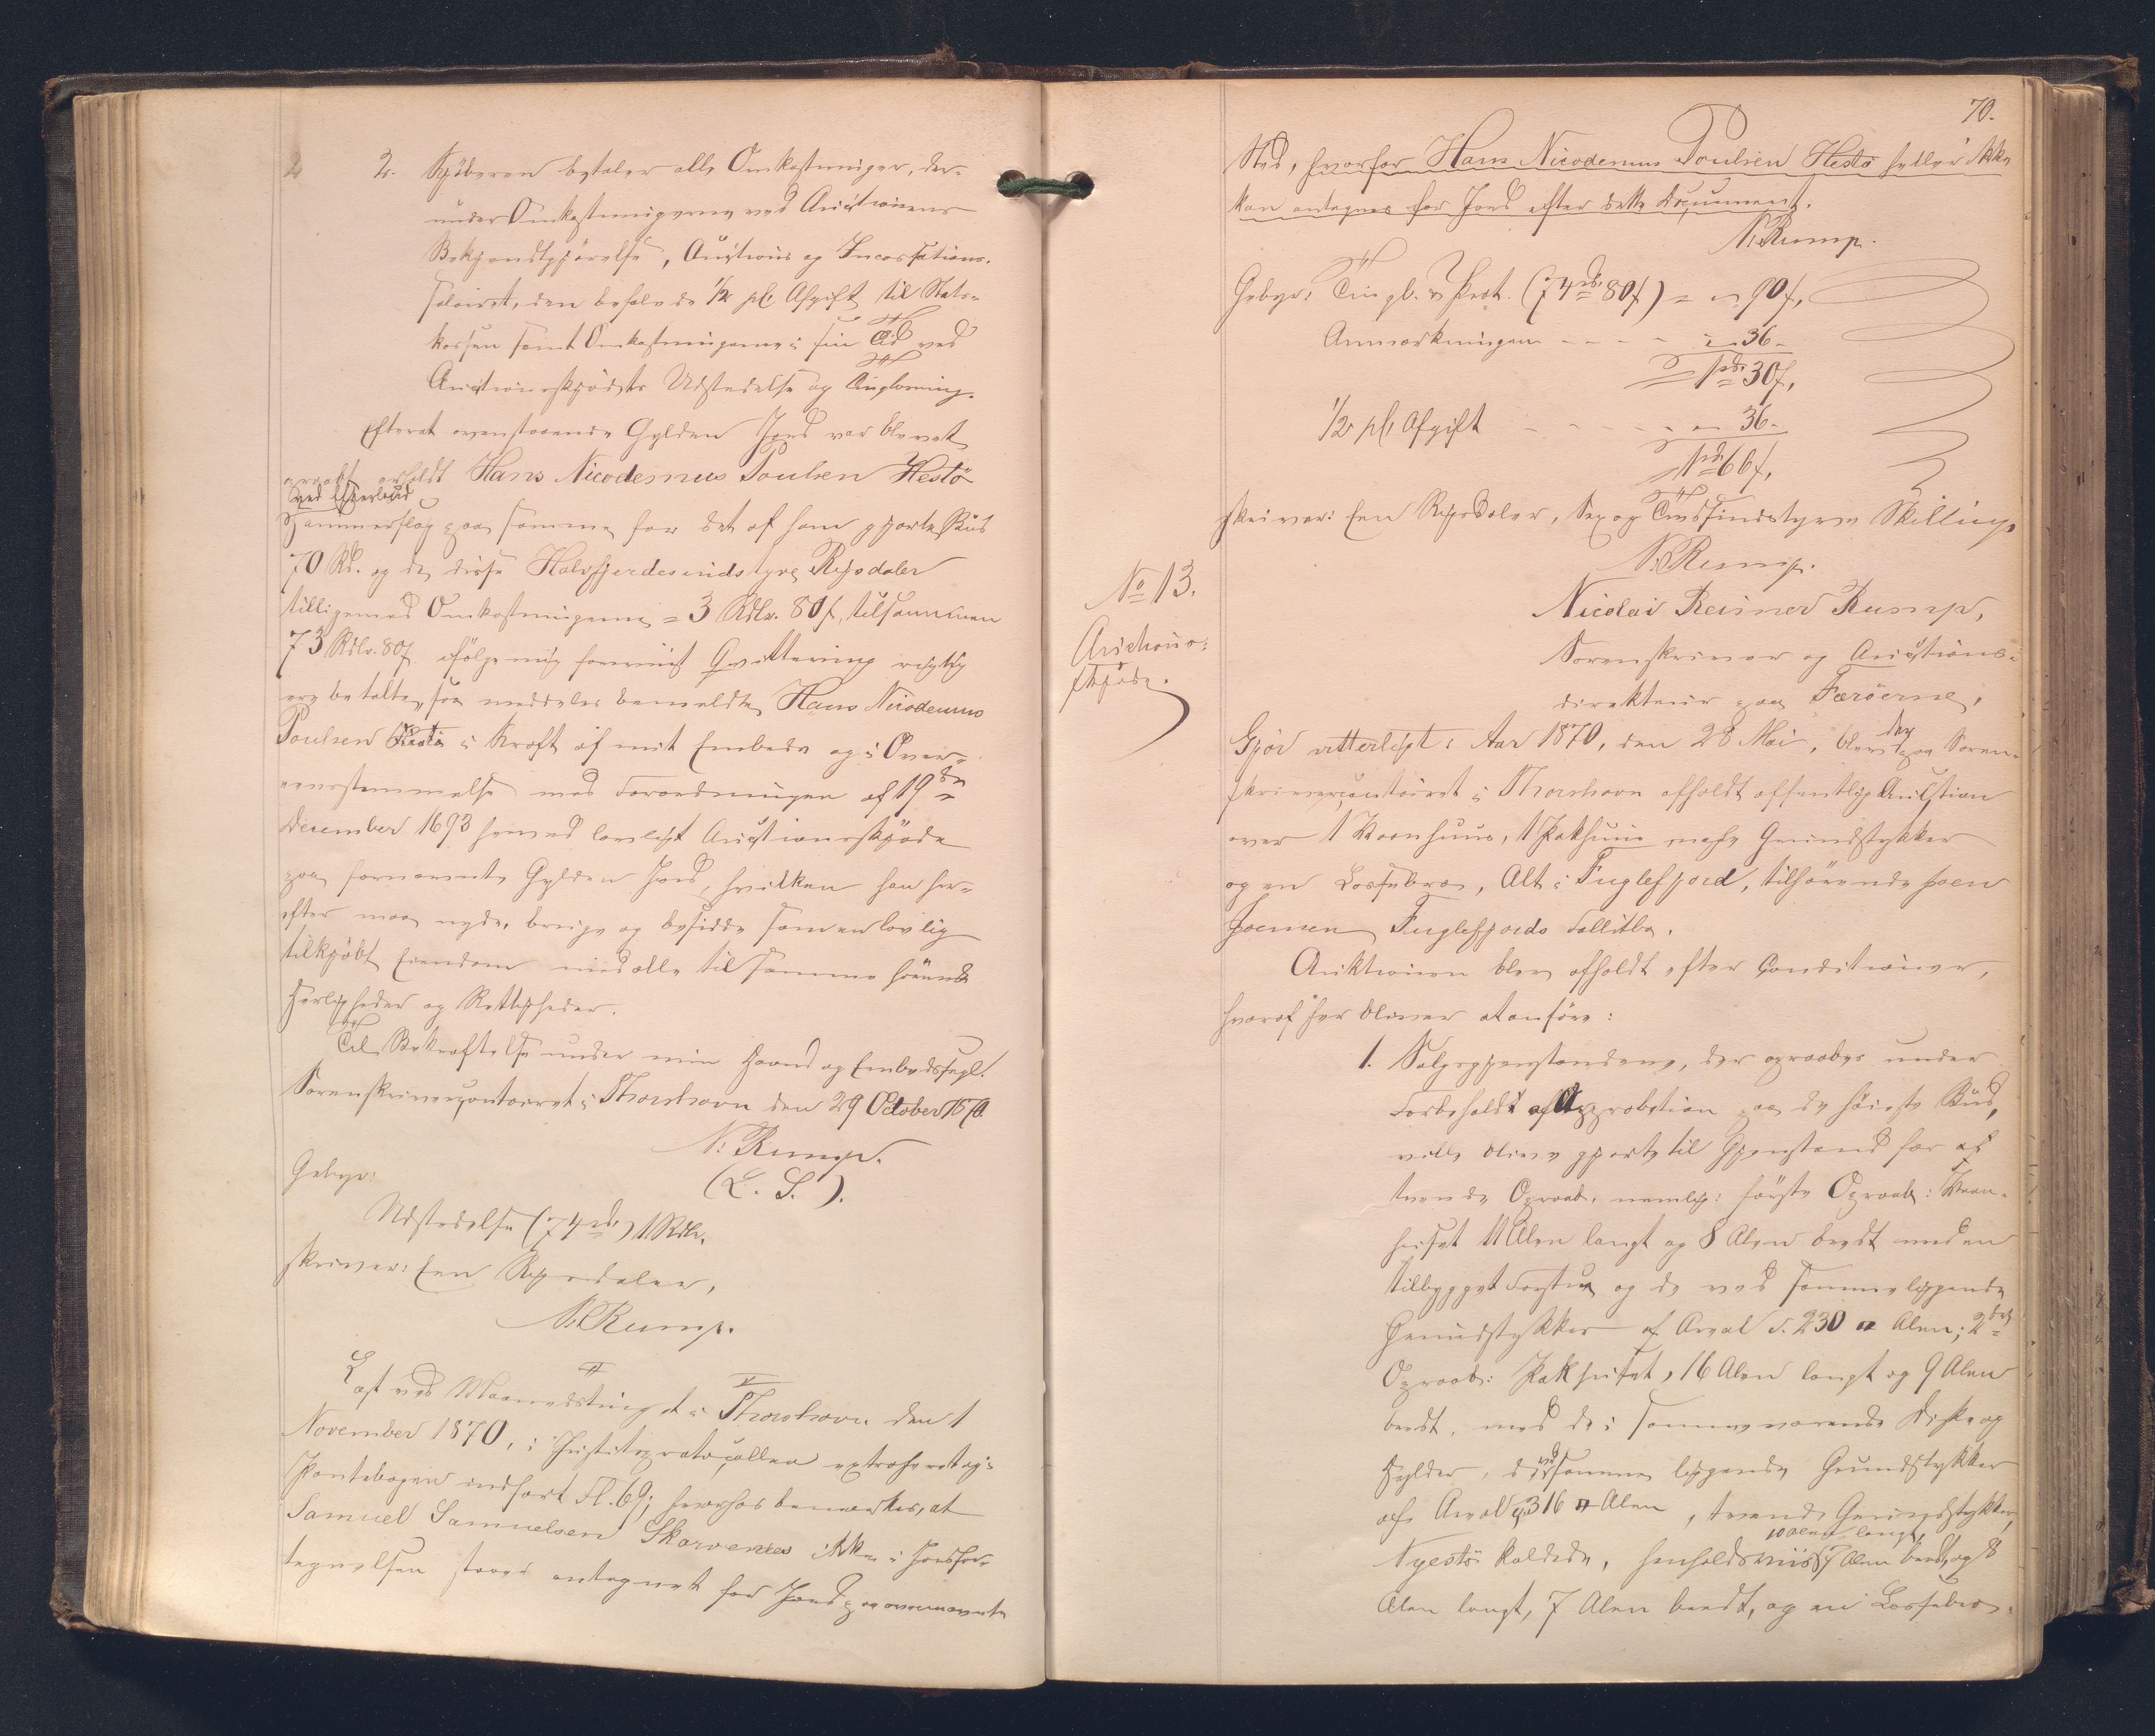 2. Kjøberen betaler alle Omkostninger, der-
under Omkostningerne ved Auctionens
Bekjendtgjørelse, Auctions og Incassations-
salairet, den befalede 1/2 pCt. Afgift til Stats-
kassen samt Omkostningerne i sin Tid ved
Auctionsskjødets Udstedelse og Tinglæsning.
Efterat ovenstaaende Gylden Jord var blevet
opraabt erholdt Hans Nicodemus Poulsen Hestö
ved Efterbud
Hammerslag paa samme for det af ham gjorte Bud
70 Rd. og da disse Halvfjerdesindstyve Rigsdaler
tilligemed Omkostningerne = 3 Rdlr. 80 s, tilsammen
73 Rdlr. 80 s ifølge min forevist Qvittering rigtig
ere betalte, saa meddeles bemeldte Hans Nicodemus
Poulsen Hestö i Kraft af mit Embede og i Over-
eensstemmelse med Forordningen af 19de
December 1693 herved lovligt Auctionsskjøde
paa fornævnte Gylden Jord, hvilken han her-
efter maa nyde, bruge og besidde som en lovlig
tilkjøbt Eiendom med alle til samme hørende
Herligheder og Rettigheder.
Til Bekræftelse under min Haand og Embedssegl.
Sorenskrivercontoiret i Thorshavn den 29 October 1870.
N. Rump.
(L. S.).
Gebyr:
Udstedelse (74 rd.) 1 Rdlr.
skriver: Een Rigsdaler,
N. Rump.
Læst ved Maanedstinget i Thorshavn den 1
November 1870, i Justitsprotocollen extraheret og i
Pantebogen indført Fl. 69; hvorhos bemærkes, at
Samuel Samuelsen Skarvenes ikke i Jordfor-
tegnelsen staaer antegnet for Jord paa ovennævnte
70.
Sted, hvorfor Hans Nicodemus Poulsen Hestö heller ikke
kan antegnes for Jord efter dette Document.
N. Rump.
Gebyr: Tingl. & Prot. (74 rd. 80 s) = " 90 s,
Anmærkningen - - - - " 36 -
1 rd. 30 s,
1/2 pCt. Afgift - - - - - " 36 -
1 rd. 66 s,
skriver: Een Rigsdaler, Sex og Tredsindstyve Skilling.
N. Rump.
No 13.
Auctions-
skjøde.
Nicolai Reiner Rump,
Sorenskriver og Auctions-
direkteur paa Færöerne,
Gjør vitterligt: Aar 1870, den 28 Mai, blev der paa Soren-
skrivercontoiret i Thorshavn afholdt offentlig Auction
over 1 Vaanhuus, 1 Pakhuus med Grundstykker
og en Lossebro, Alt i Fuglefjord, tilhørende Joen
Joensen Fuglefjords Fallitbo.
Auktionen blev afholdt efter Conditioner,
hvoraf her bliver at anføre:
1. Salgsgjenstandene, der opraabes under
Forbehold af Approbation paa de høieste Bud,
ville blive gjorte til Gjenstand for at
tvende Opraab, nemlig: første Opraab: Vaan-
huset 11 Alen langt og 8 Alen bredt med en
tilbygget Forstue og de ved samme liggende
Grundstykker af Areal c. 230 □ Alen; 2det
Opraab: Pakhuset, 16 Alen langt og 9 Alen
bredt, med de i samme værende Diske og
Hylder, de ved samme liggende Grundstykker
af Areal c. 316 □ Alen, tvende Grundstykker,
Nyestö kaldede, henholdsviis 10 Alen langt, 7 Alen bredt, og 8
Alen langt, 7 Alen bredt, og en Lossebro.